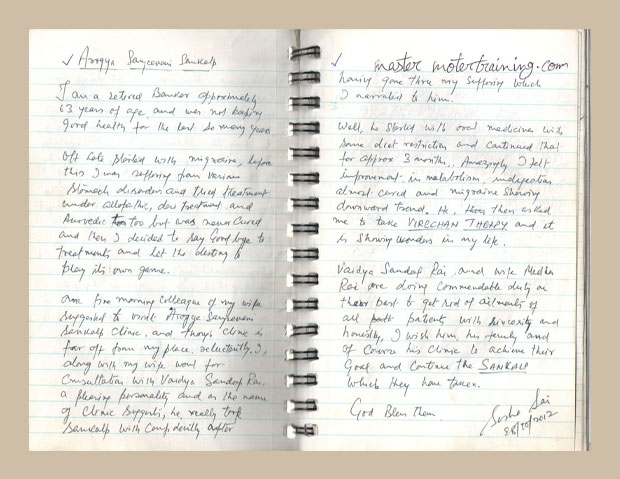 ✓ Arogya Sanjeevani Sankalp
I am a retired Banker approximately
63 years of age and was not keeping
good health for the last so many years
Of Late started with migraine, before
this I was suffering from various
Stomach disorders and tried treatment
under allopathic, dow treatment, and
Aurvedic too but was never Cured
and then I decided to say Good bye to
treatments and let the destiny to
play its own game.
One fine morning Colleague of my wife
Suggested to visit Arogya Sanjeevani
Sankalp Clinic. and though clinic is
far off from my place, reluctantly, I,
along with my wife went for
Consultation with Vaidya Sandeep Rai,
a pleasing personality and as the name
of Clinic Suggests, he really took
Sankalp with Confidently after
✓ master motertraining.com
having gone thru my suffering which
I narrated to him.
Well, he started with oral medicines with
some diet restriction and continued that
for approx 3 months. Amazingly I felt
improvement in metabolism, indigestion
almost cured and migraine showing
downward trend. He, then asked
me to take VIRECHAN THERAPY and it
is showing wonders in my life.
Vaidya Sandeep Rai and wife Medha
Rai are doing commendable duty on
their best to get rid of ailments of
all patients with sincerity and
honestly, I wish him, his family and
of Course his Clinic to achieve their
Goal and Continue the SANKALP
which they have taken.
God Bless them.
28/10/2012